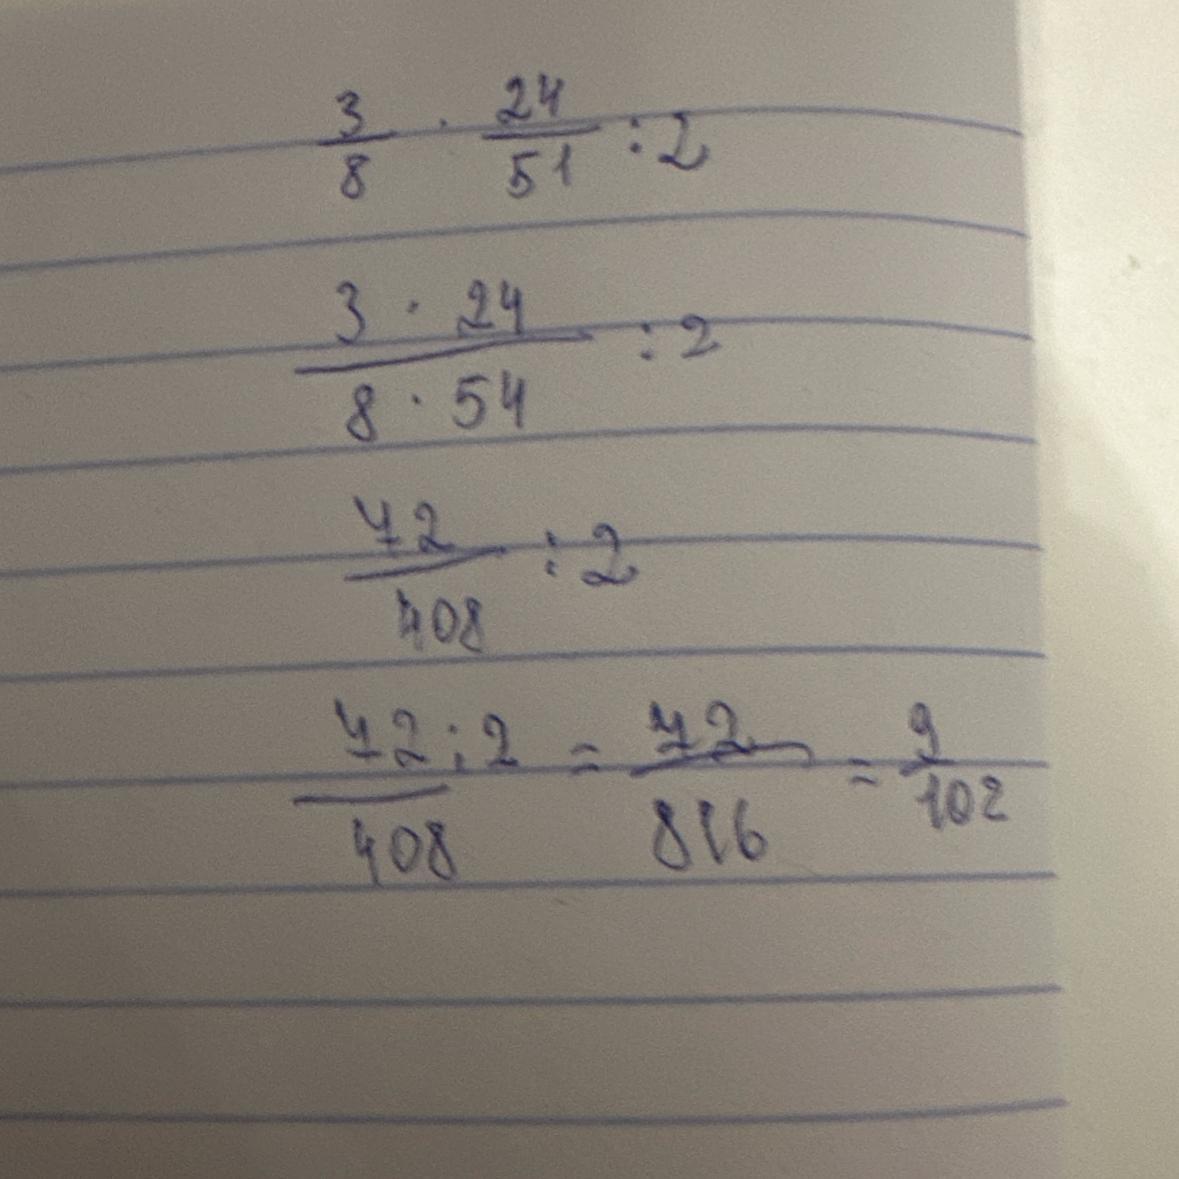 3/8 · 24/51 : 2
3 · 24 / 8 · 54 : 2
72/408 : 2
72 : 2 / 408 = 72/816 = 9/102